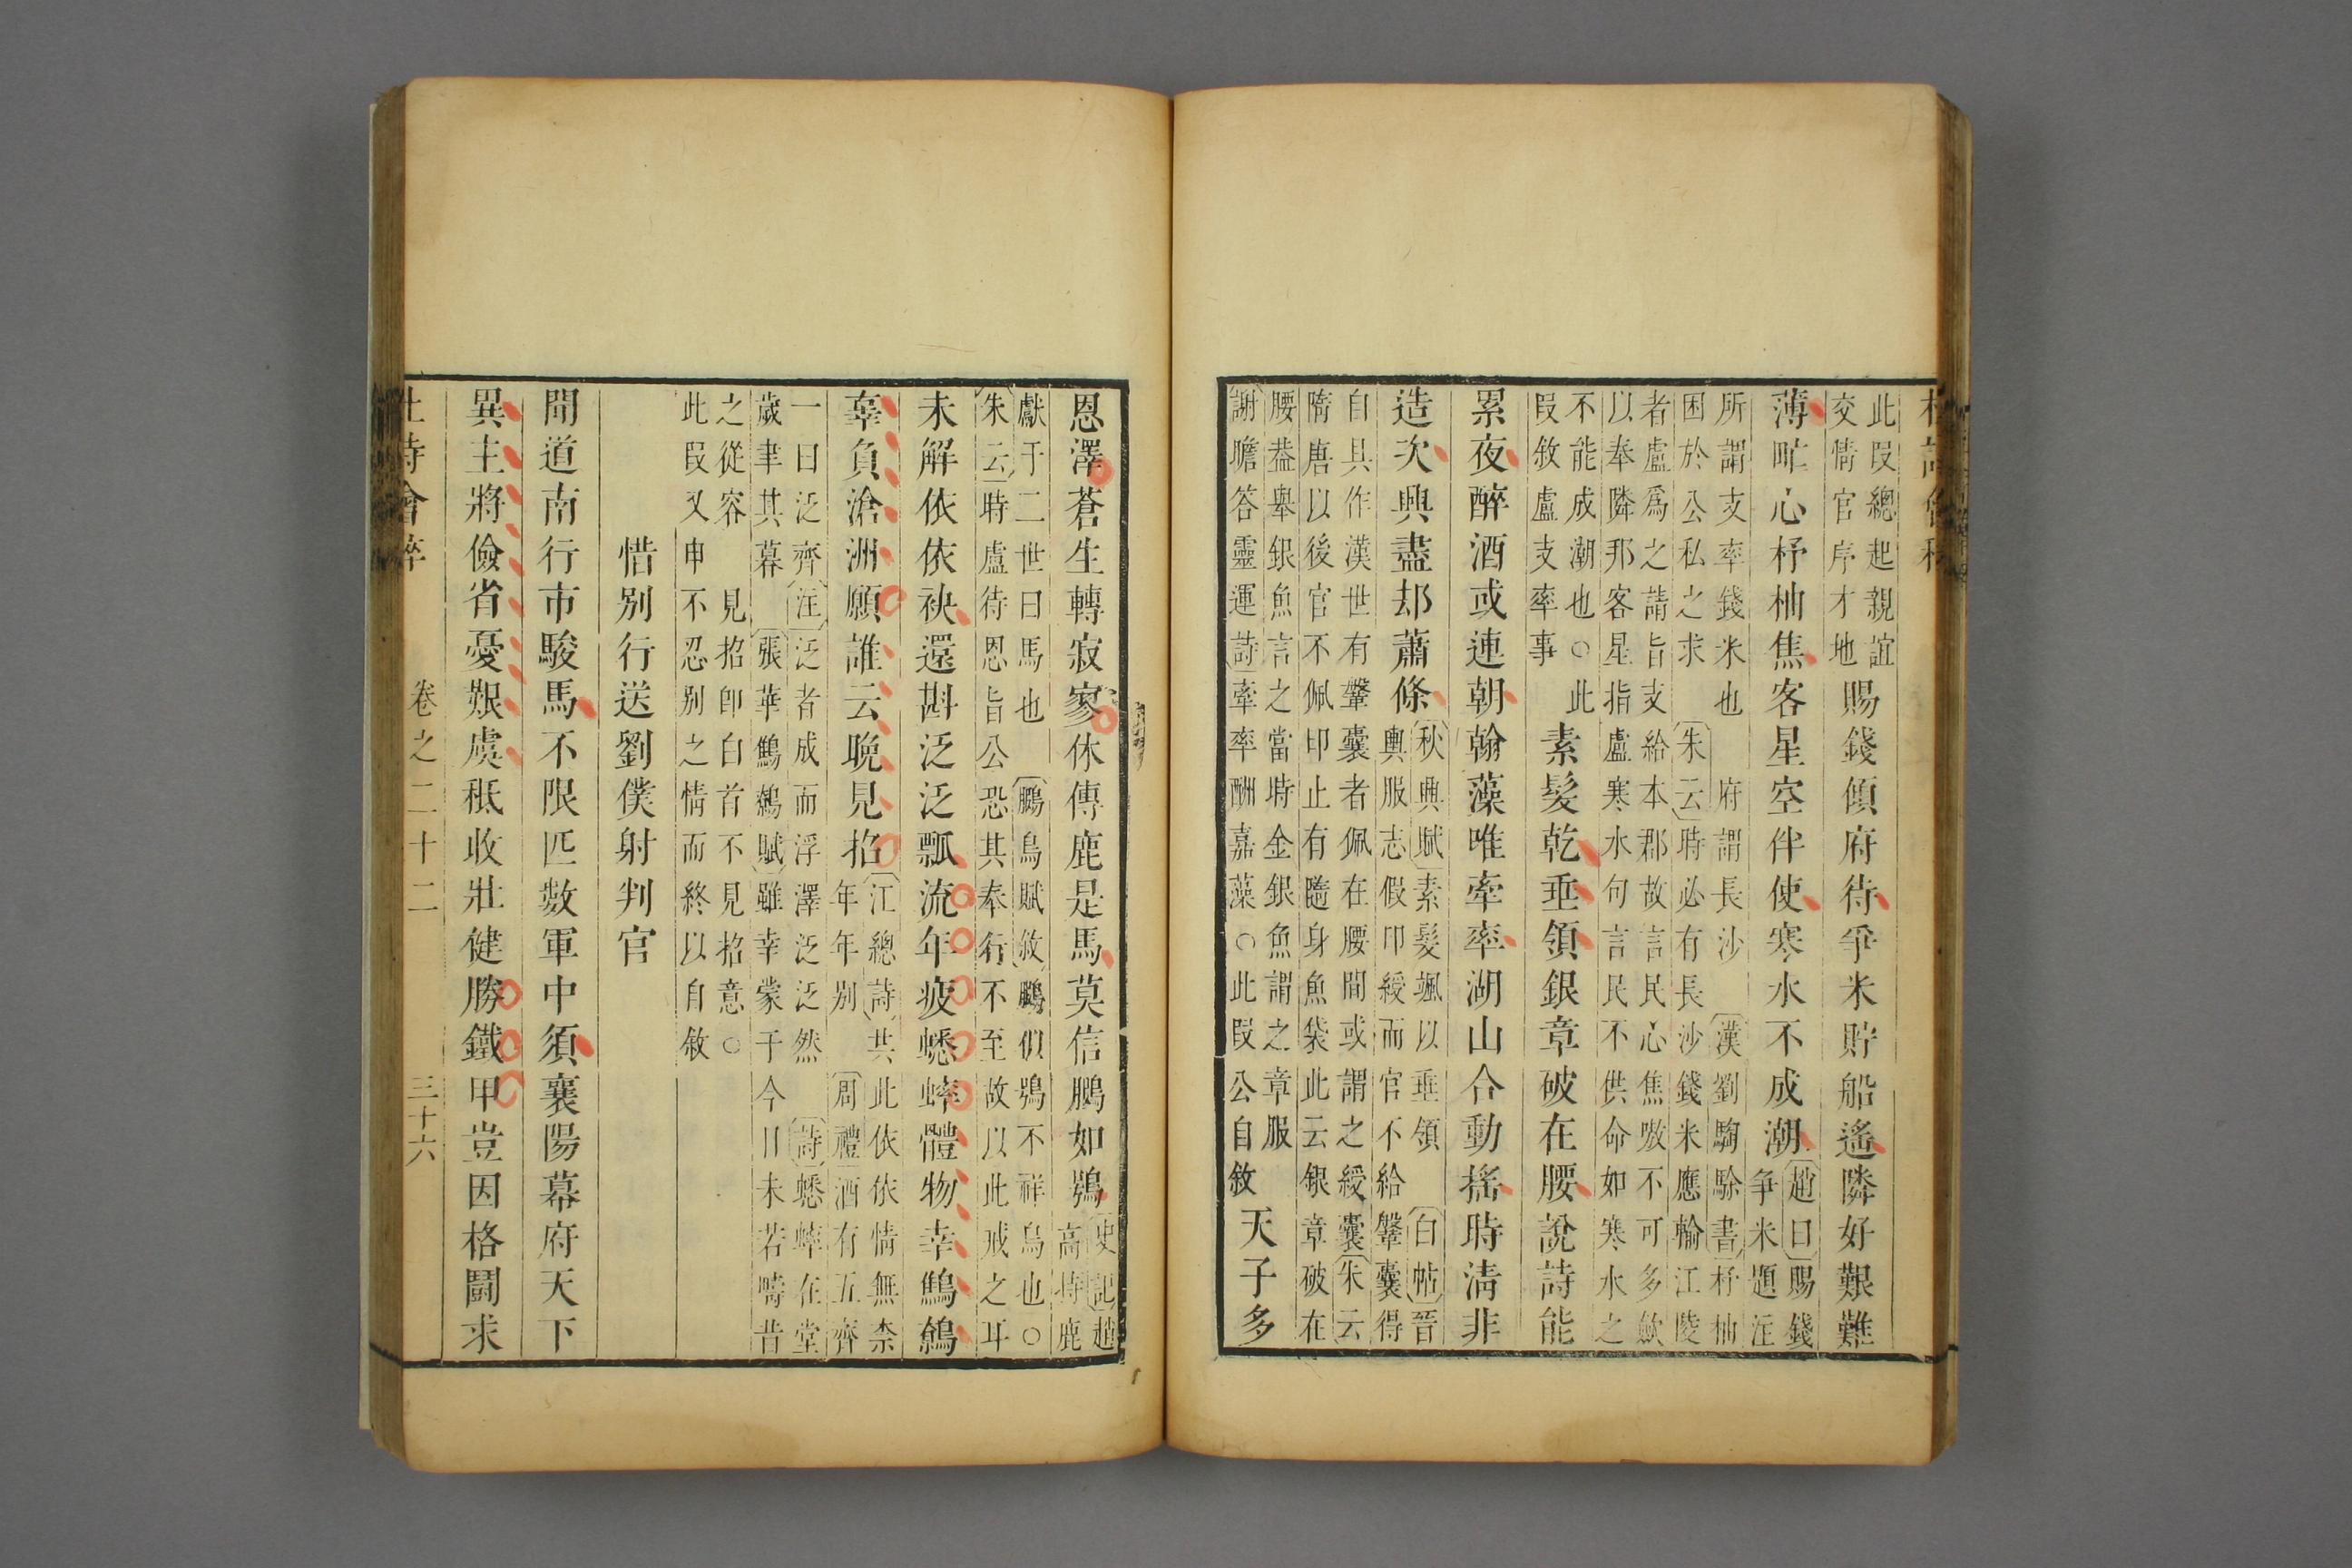 杜詩會稡
此叚總起親誼交情官序才地 賜錢傾府待爭米貯船遙隣好艱難
薄甿心杼柚焦客星空伴使寒水不成潮 趙曰賜錢爭米題注
所謂支率錢米也 府謂長沙 漢劉騊駼書杼柚
困於公私之求 朱云時必有長沙錢米應輸江陵
者盧爲之請旨支給本郡故言民心焦嗷不可多歛
以奉隣邦客星指盧寒水句言民不供命如寒水之
不能成潮也○此叚敘盧支率事 素髮乾垂領銀章破在腰說詩能
累夜醉酒或連朝翰藻唯牽率湖山合動搖時淸非
造次興盡却蕭條 秋興賦素髮颯以垂領 白帖晉輿服志假印綬而官不給鞶囊得
自具作漢世有鞶囊者佩在腰間或謂之綬囊朱云
隋唐以後官不佩印止有隨身魚袋此云銀章破在
腰葢舉銀魚言之當時金銀魚謂之章服
謝瞻答靈運詩牽率酬嘉藻○此叚公自敘 天子多
恩澤蒼生轉寂寥休傳鹿是馬莫信鵩如鴞 史記趙高持鹿
獻于二世曰馬也 鵩鳥賦敘鵩似鴞不祥鳥也○
朱云時盧待恩旨公恐其奉行不至故以此戒之耳
未解依依袂還斟泛泛瓢流年疲蟋蟀體物幸鷦鷯
辜負滄洲願誰云晩見招 江總詩共此依依情無柰年年别 周禮酒有五齊
一曰泛齊注泛者成而浮澤泛泛然 詩蟋蟀在堂
歲聿其暮 張華鷦鷯賦雖幸蒙于今日未若疇昔
之從容 見招卽白首不見招意○
此叚又申不忍别之情而終以自敘
惜别行送劉僕射判官
聞道南行市駿馬不限匹數軍中須襄陽幕府天下
異主將儉省憂艱虞秪收壯健勝鐵甲豈因格鬭求
杜詩會稡 卷之二十二 三十六